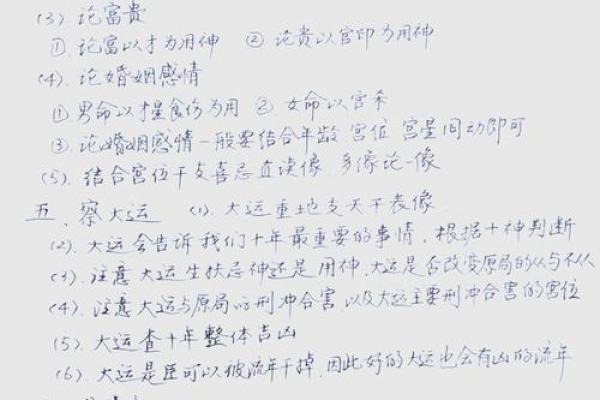 (3) 论富贵
① 论富以才为用神 ② 论贵以官印为用神
(4). 论婚姻感情
① 男命以才星食伤为用 ② 女命以官杀
③ 论婚姻感情一般要结合年龄 宫位 宫星同动即可
(5). 结合宫位干支喜忌直读像 多像论一像
五、察大运 (1). 大运重地支天干表像
(2). 大运会告诉我们十年最重要的事情，根据十神判断
(3). 注意大运生扶忌神还是用神，大运是否改变原局的从与不从
(4). 注意大运与原局的刑冲合害，以及大运主要刑冲合害的宫位
(5). 大运查十年整体吉凶
(6). 大运是臣可以被流年干掉，因此好的大运也会有凶的流年